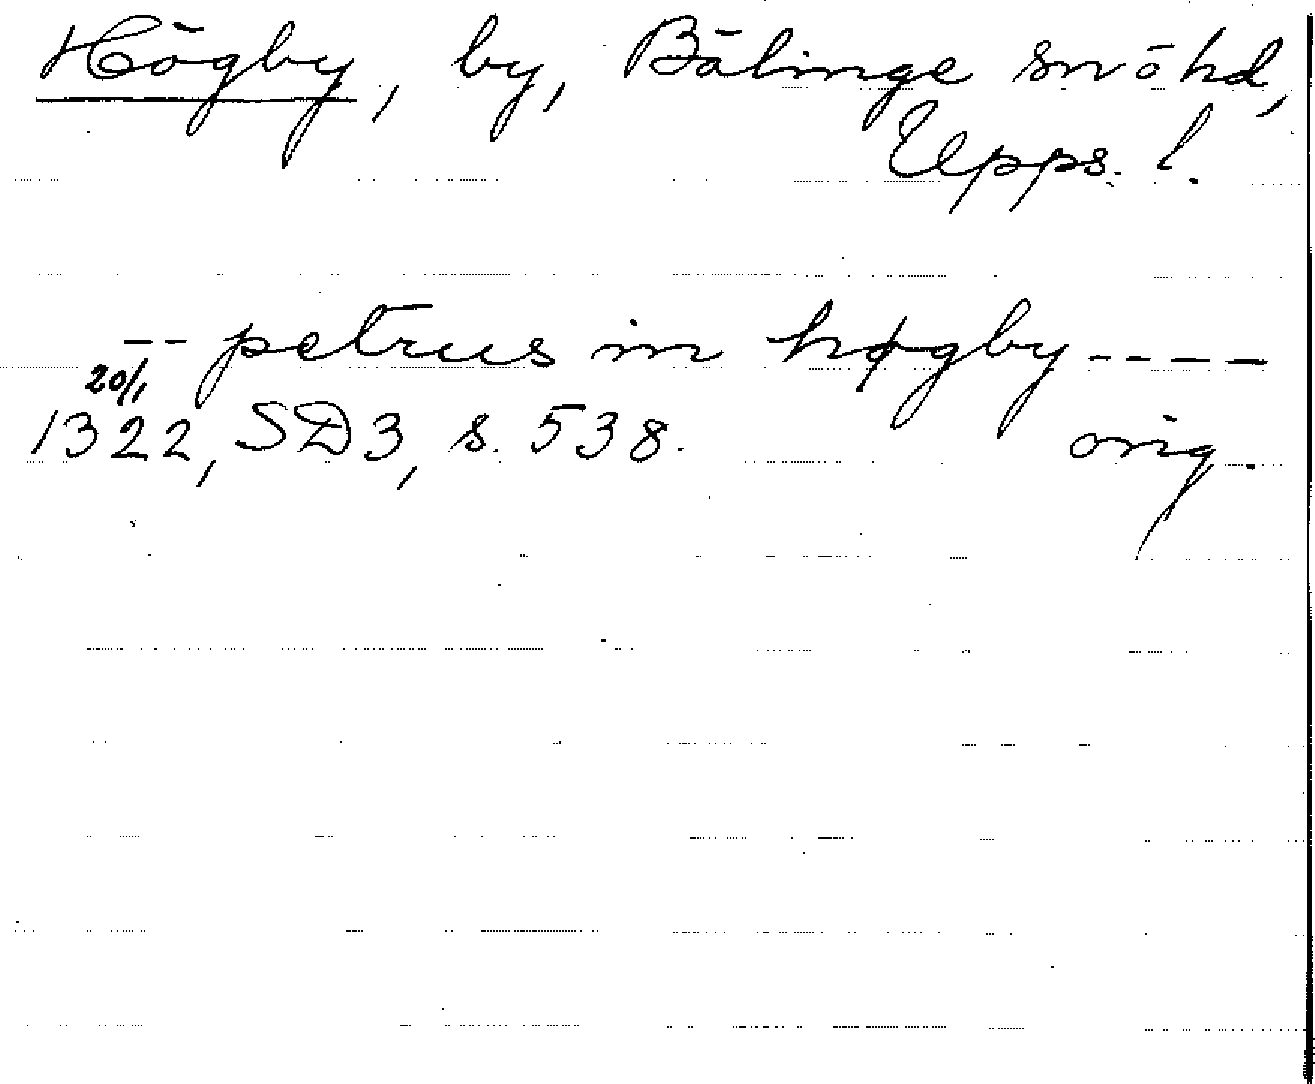 Högby, by, Bälinge sn o hd,
Upps. l.
-- petrus in høgby ----
20/1
1322, SD3, s. 538. orig.